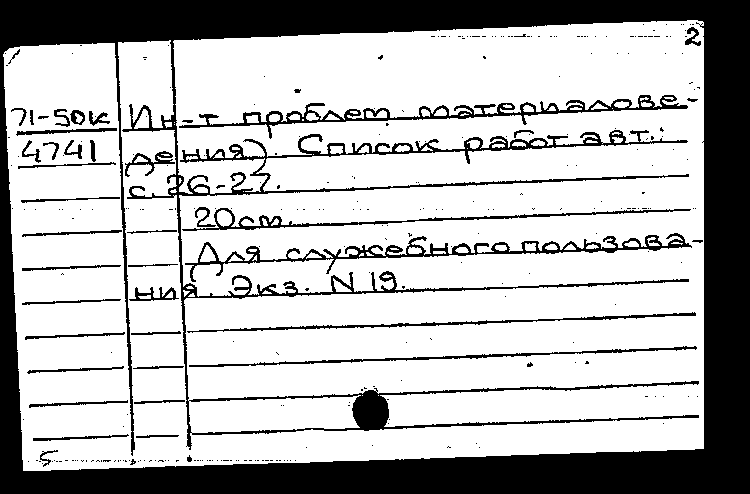 2
71-50к Ин-т проблем материалове-
4741 дения). Список работ авт.:
с. 26-27.
20см.
Для служебного пользова-
ния. Экз. N 19.
5